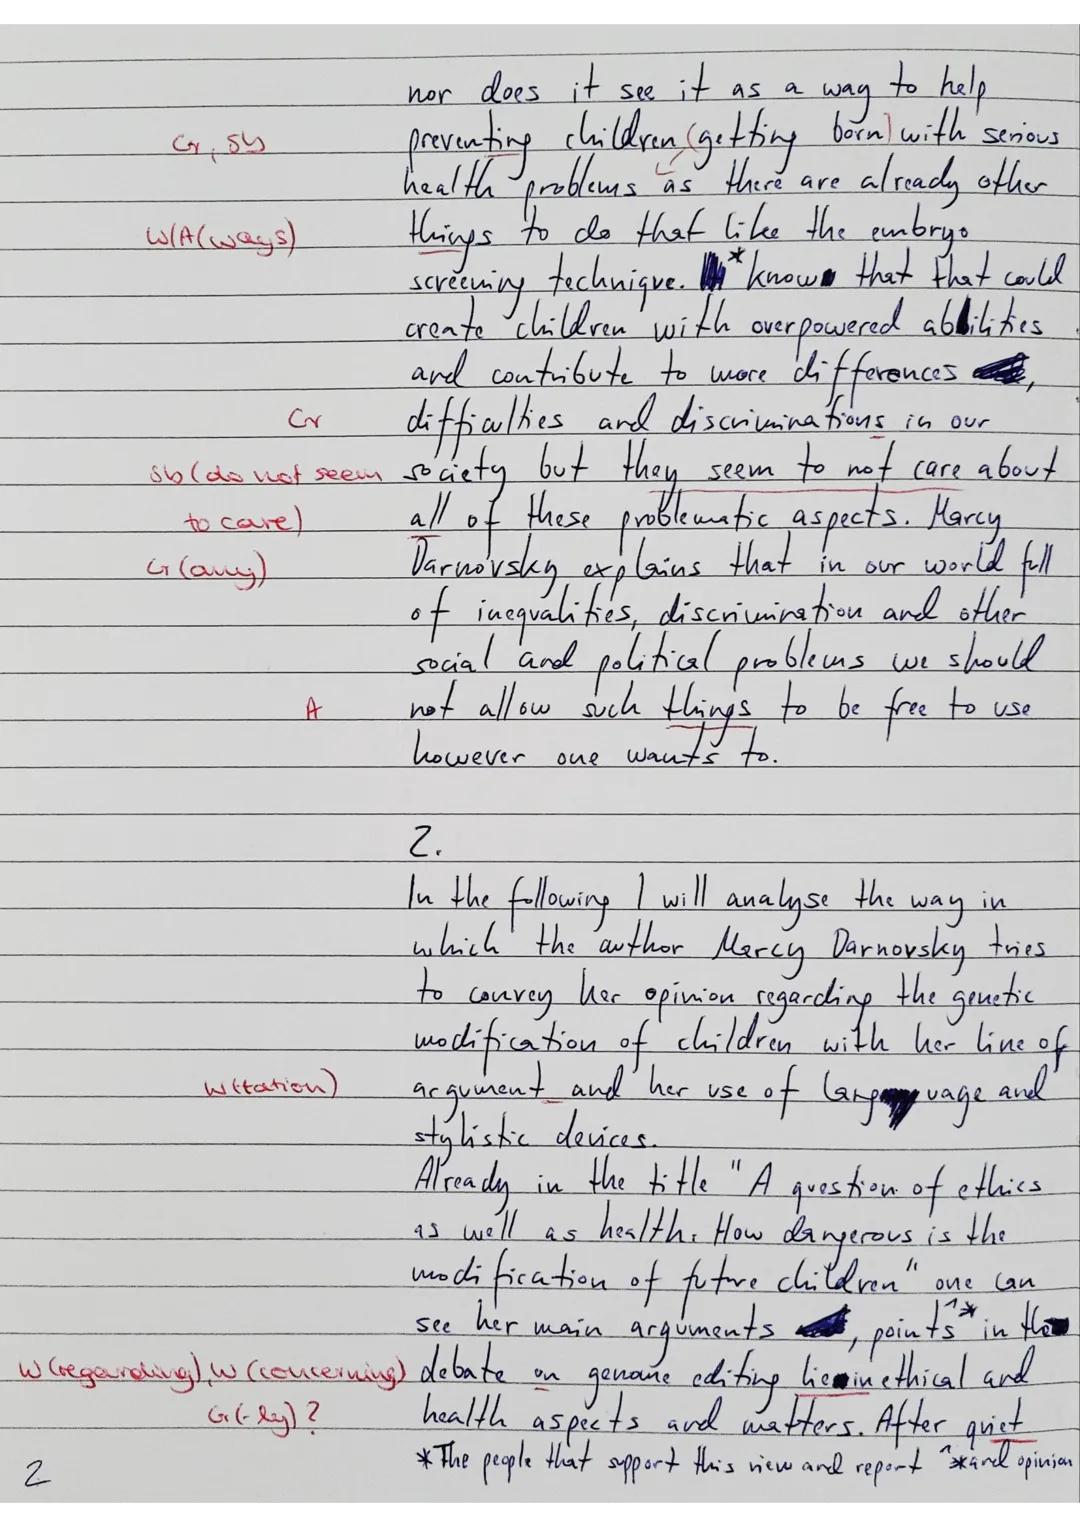 nor does it see it as a way to help
Gr, Sb preventing children (getting born) with serious
health problems as there are already other
W/A(ways) things to do that like the embryo
screening technique. * know that that could
create children with overpowered abilities
and contribute to more differences ,
Gr difficulties and discriminations in our
Sb (do not seem society but they seem to not care about
to care) all of these problematic aspects. Marcy
Gr (any) Darnovsky explains that in our world full
of inequalities, discrimination and other
social and political problems we should
A not allow such things to be free to use
however one wants to.
2.
In the following I will analyse the way in
which the author Marcy Darnovsky tries
to convey her opinion regarding the genetic
modification of children with her line of
W(tation) argument and her use of language and
stylistic devices.
Already in the title "A question of ethics
as well as health. How dangerous is the
modification of future children" one can
see her main arguments , points ^* in the
W (regarding), W (concerning) debate on genome editing lie in ethical and
Gr(-ly)? health aspects and matters. After quiet
2 *The people that support this view and report ^*and opinion